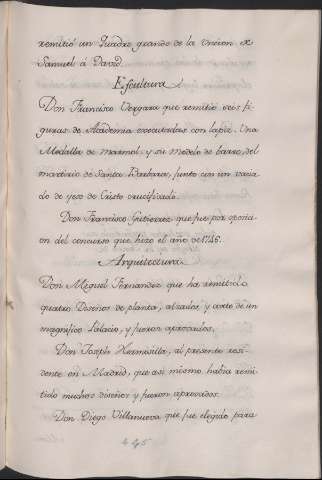 remitió un Quadro grande de la Uncion de
Samuel á David
Escultura
Don Francisco Vergara que remitió seis fi-
guras de Academia executadas con lapiz. Una
Medalla de marmol y su modelo de barro, del
martirio de Santa Barbara, junto con un vacia-
do de yeso de Cristo crucificado.
Don Francisco Gutierrez que fue por oposici-
on del concurso que hizo el año de 1746.
Arquitectura
Don Miguel Fernandez que ha remitido
quatro Diseños de planta, alzados, y corte de un
magnifico Palacio, y fueron aprovados.
Don Joseph Hermosilla, al presente resi-
dente en Madrid, que asi mismo havia remi-
tido muchos diseños y fueron aprovados.
Don Diego Villanueva que fue elegido para